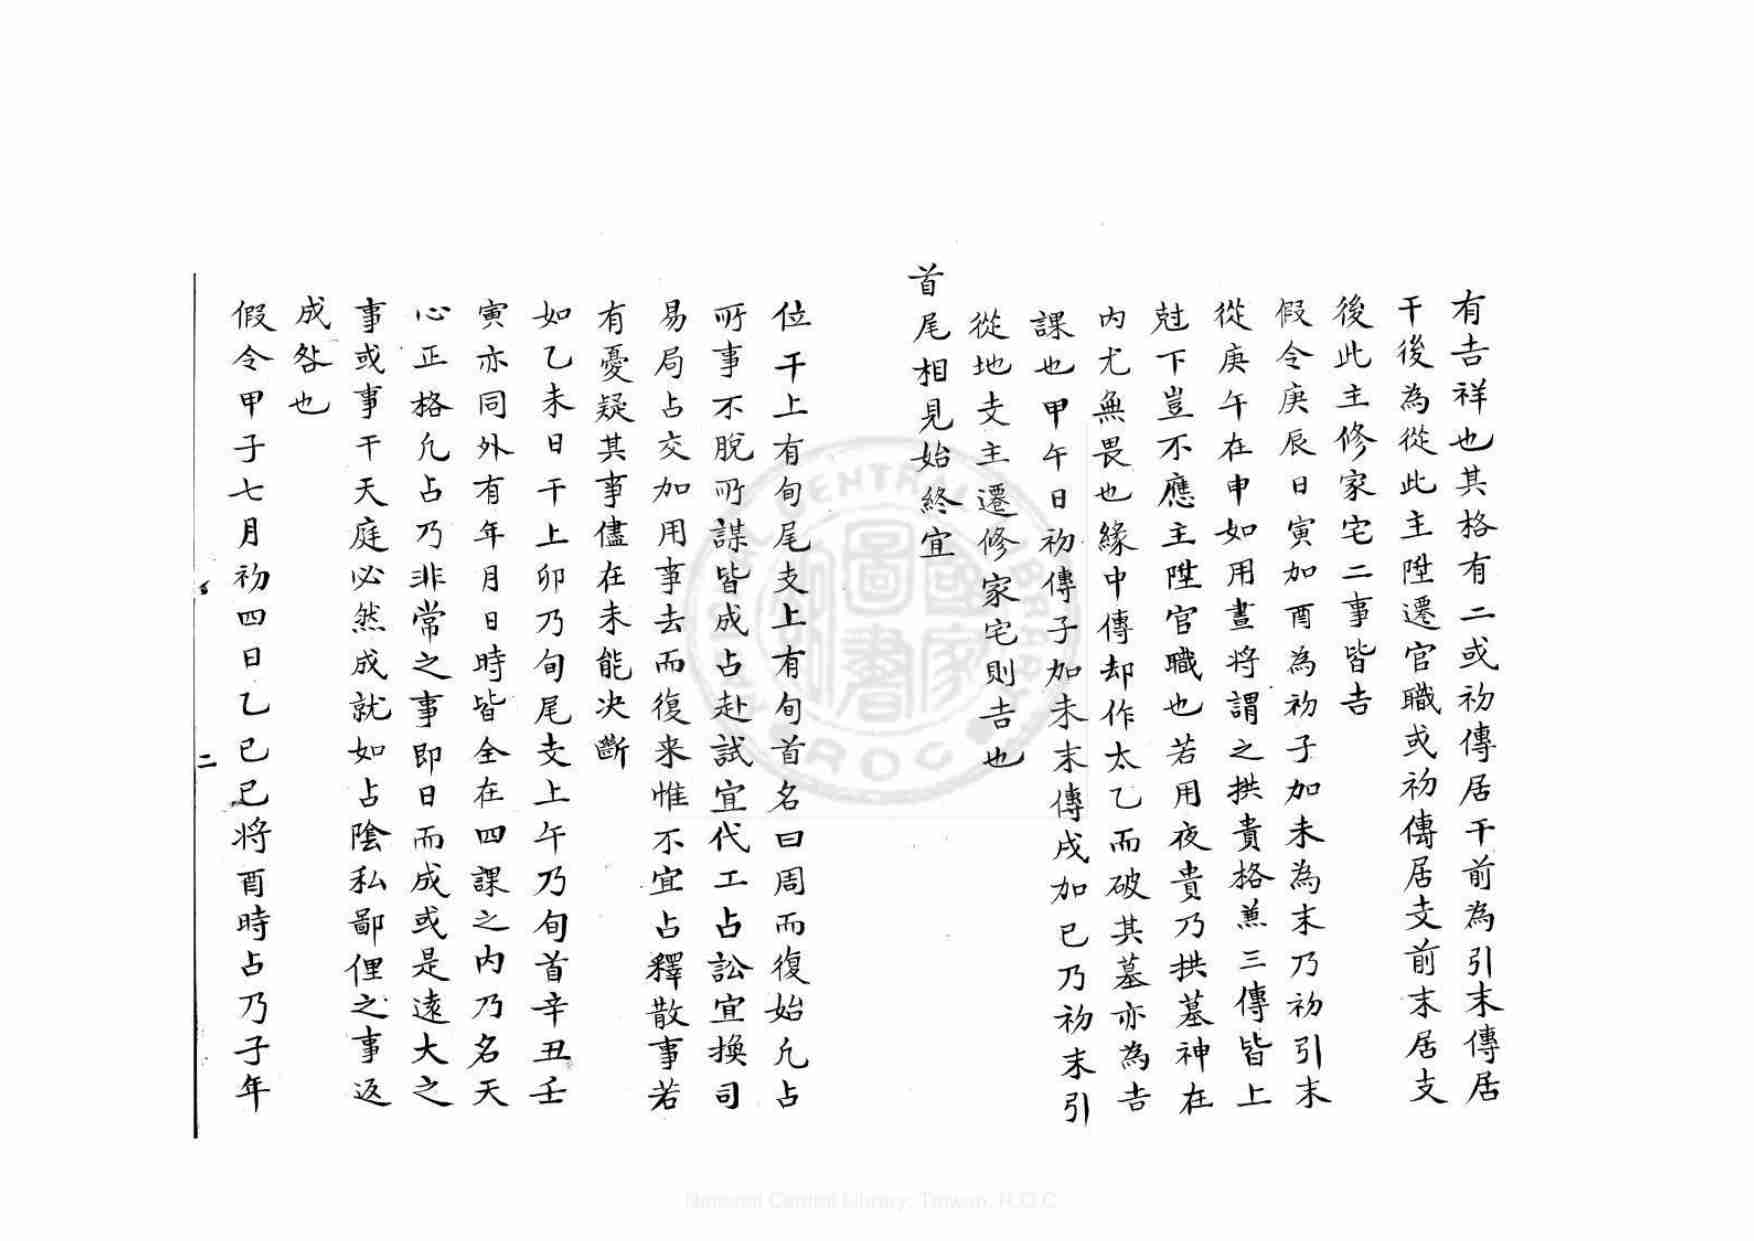 有吉祥也其格有二或初傳居干前為引末傳居
干後為從此主陞遷官職或初傳居支前末居支
後此主修家宅二事皆吉
假令庚辰日寅加酉為初子加未為末乃初引末
從庚午在申如用晝將謂之拱貴格蒸三傳皆上
尅下豈不應主陞官職也若用夜貴乃拱墓神在
内尤無畏也緣中傳却作太乙而破其墓亦為吉
課也甲午日初傳子加未末傳戌加巳乃初末引
從地支主遷修家宅則吉也
首尾相見始終宜
位干上有旬尾支上有旬首名曰周而復始凡占
所事不脫所謀皆成占赴試宜代工占訟宜換司
易局占交加用事去而復来惟不宜占釋散事若
有憂疑其事儘在未能决斷
如乙未日干上卯乃旬尾支上午乃旬首辛丑壬
寅亦同外有年月日時皆全在四課之内乃名天
心正格凡占乃非常之事即日而成或是遠大之
事或事干天庭必然成就如占陰私鄙俚之事返
成咎也
假令甲子七月初四日乙巳巳将酉時占乃子年
二
National Central Library, Taiwan, R.O.C
國家圖書館
NATIONAL CENTRAL LIBRARY ROC